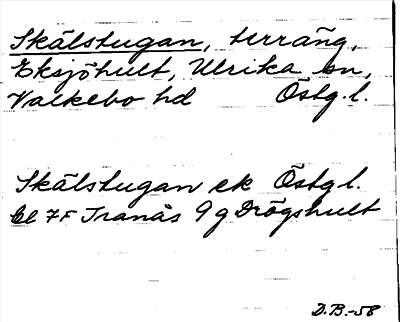 Skålstugan, terräng,
Eksjöhult, Ulrika sn,
Valkebo hd Östg. l.
Skålstugan ek Östg l.
bl 7F Tranås 9 g Drögshult
D.B.-58